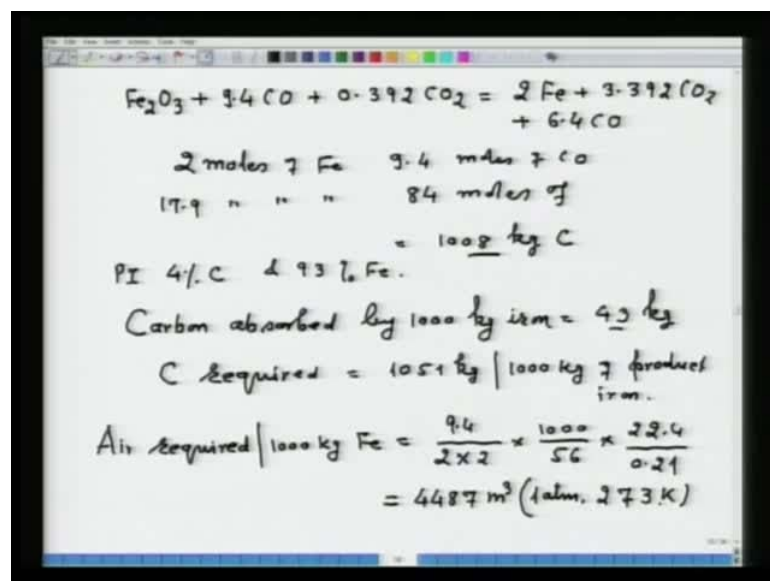 Fe2O3 + 9.4 CO + 0.392 CO2 = 2 Fe + 3.392 CO2
+ 6.4 CO
2 moles of Fe 9.4 moles of CO
17.9 " " " 84 moles of
= 1008 kg C
PI 4% C & 93% Fe.
Carbon absorbed by 1000 kg iron = 43 kg
C required = 1051 kg | 1000 kg of product
iron.
Air required | 1000 kg Fe = 9.4/2×2 × 1000/56 × 22.4/0.21
= 4487 m³ (1atm. 273 K)